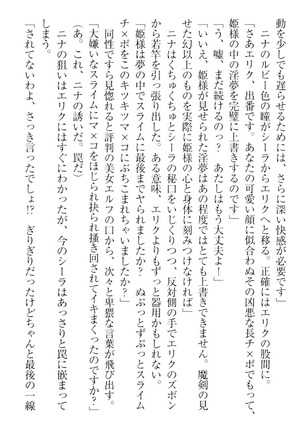 動を少しでも遅らせるためには、さらに深い快感が必要です」
　ニナのルビー色の瞳がシーラからエリクへと移る。正確にはエリクの股間に。
「さあエリク、出番です。あなたの可愛い顔に似合わぬその凶悪な長チ×ポでもって、
姫様の中の淫夢を完璧に上書きするのです」
「う、嘘、まだ続けるのっ？　あたしはもう大丈夫よ！」
「いいえ、姫様が見せられた淫夢はあの程度ではとても上書きできません。魔剣の見
せた幻以上のものを実際に姫様の心と身体に刻みつけなければ」
　ニナはくちゅくちゅとシーラの秘口をいじくりつつ、反対側の手でエリクのズボン
から若竿を引っ張り出した。ある意味、エリクよりもずっと器用かもしれない。
「姫様は夢の中でスライムに最後までヤられましたか？　ぬぷっとずぷっとスライム
チ×ポをこのキツキツマ×コにぶちこまれましたか？
大嫌いなスライムにマ×コをほじられ抉られ掻き回されてイキまくったのですか？」
　同性ですら見惚れると評判の美女エルフの口から、次々と卑猥な言葉が飛び出す。
（あ。これ、ニナの誘いだ。罠だ）
　ニナの狙いはエリクにはすぐにわかったが、今のシーラはあっさりと罠に嵌まって
しまう。
「されてないわよ、さっき言ったでしょ!?　ぎりぎりだったけどちゃんと最後の一線